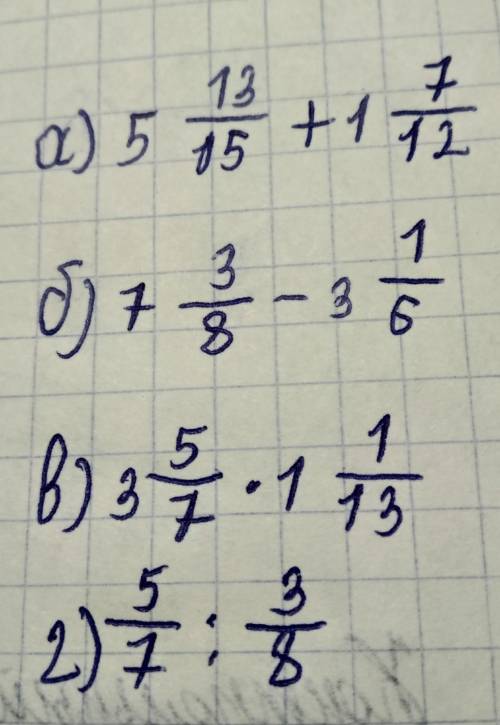 а) 5 13/15 + 1 7/12
б) 7 3/8 - 3 1/6
в) 3 5/7 · 1 1/13
г) 5/7 : 3/8